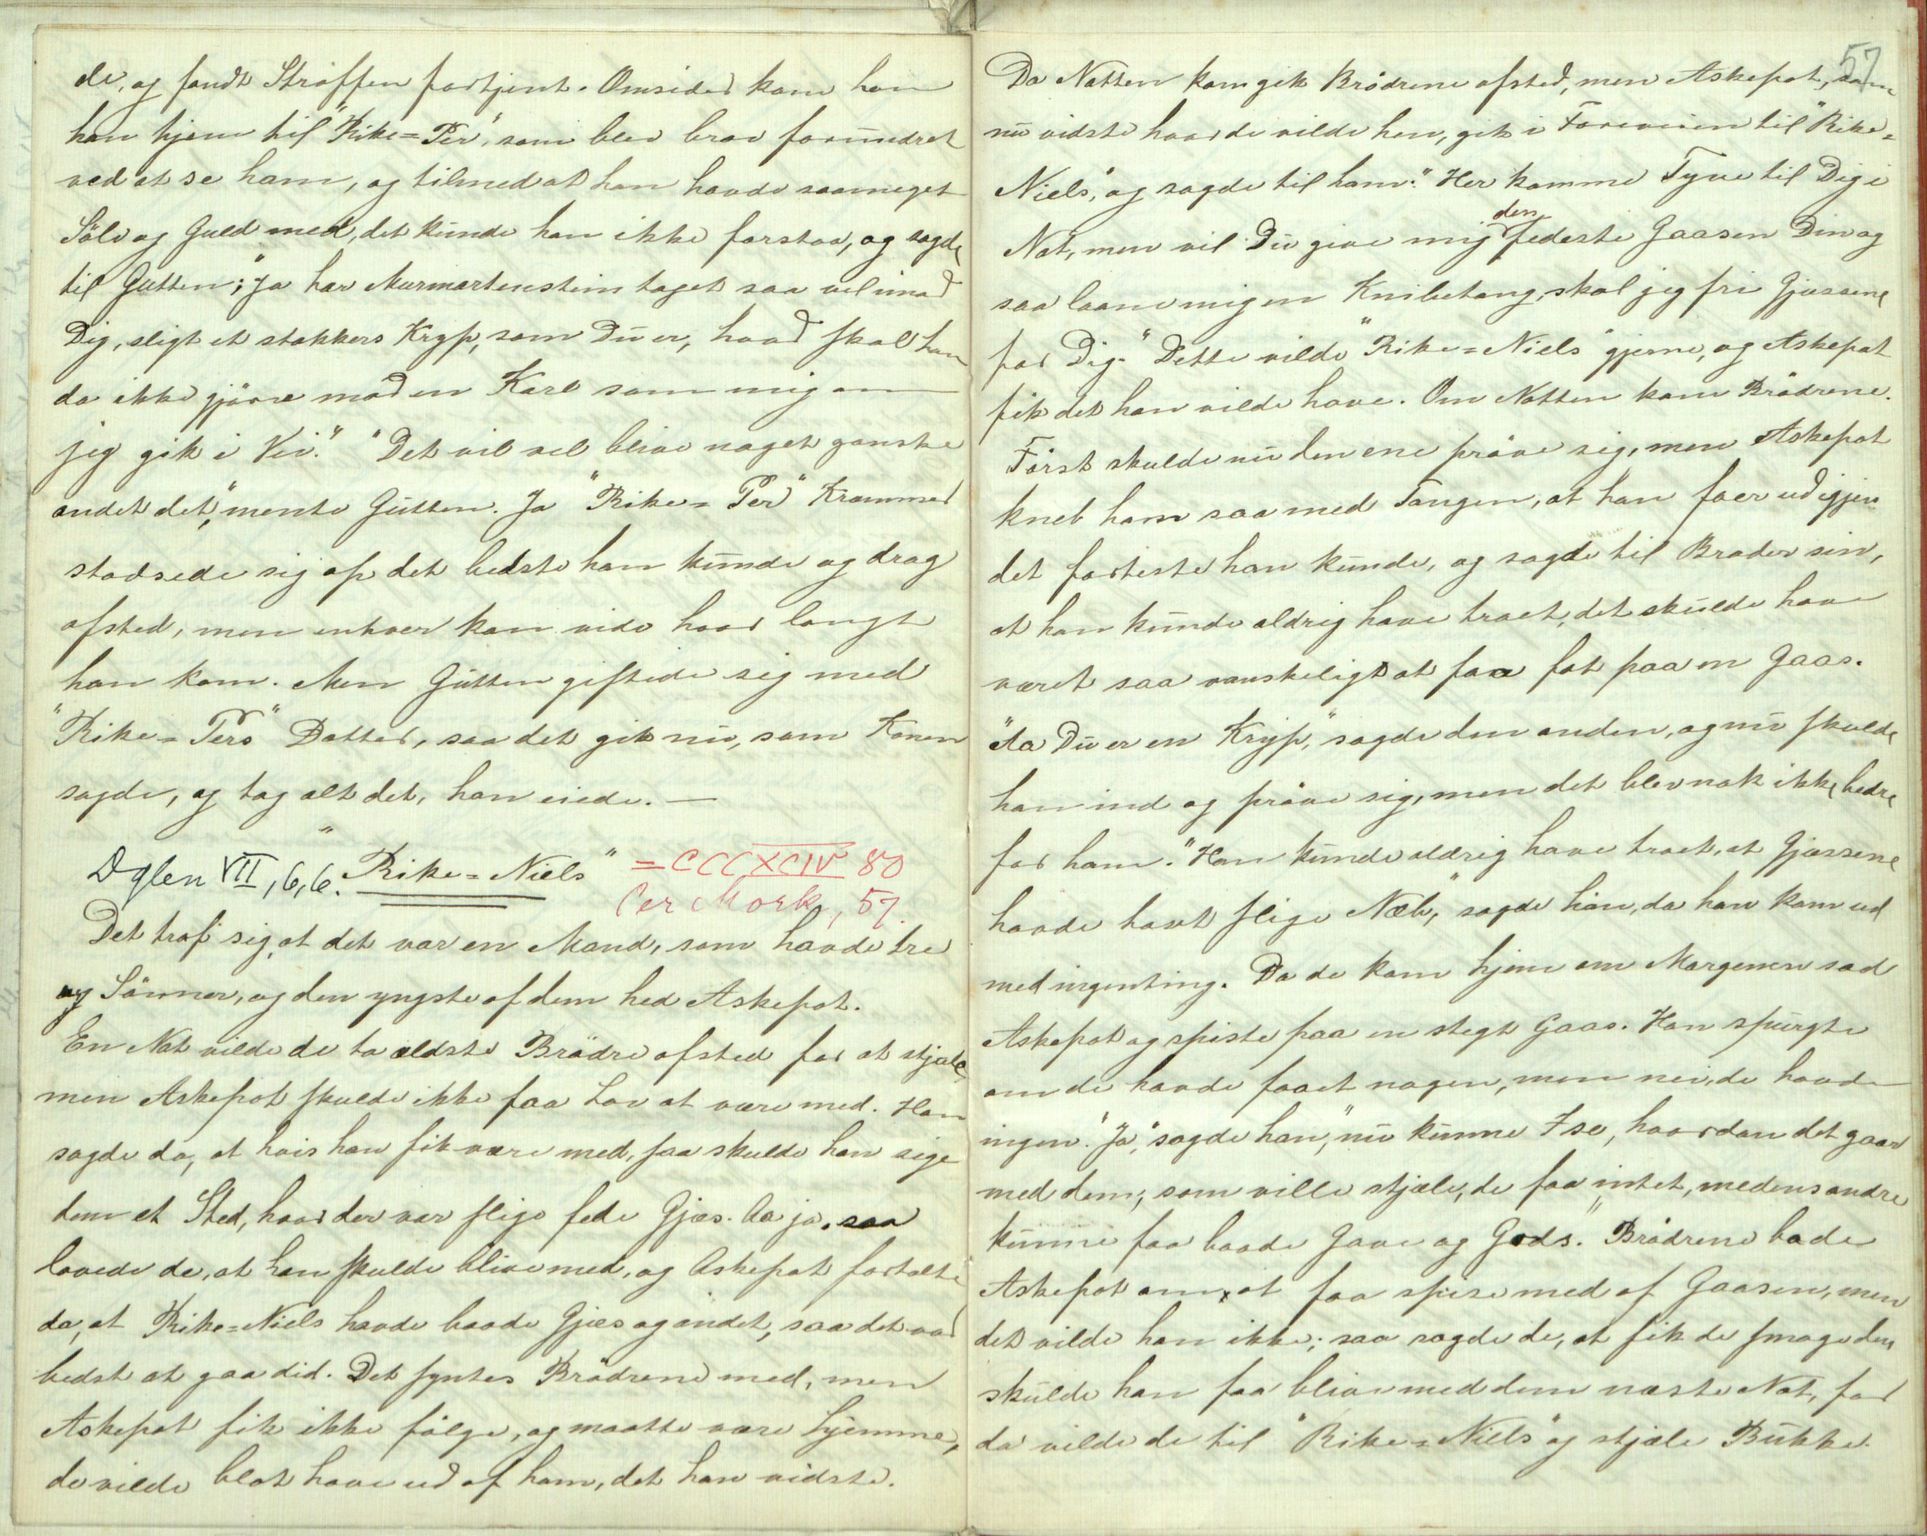 de, og fandt Straffen fortjent. Omsider kom han
han hjem til "Rike=Per", som blev brav forundret
ved at se ham, og tilmed at han havde saameget
Sölv og Guld med, det kunde han ikke forstaa, og sagde
til Gutten; "Ja har Murmartenstein taget saa vel imod
Dig, sligt et stakkers Kryp, som Du er, hvad skal han
da ikke gjöre mod en Karl som mig om
jeg gik i Vei". "Det vil vel blive noget ganske
andet det," mente Gutten. Ja "Rike=Per" Krammer
stadsede sig op det bedste han kunde og drog
afsted, men enhver kan vide hvor langt
han kom. Men Gutten giftede sig med
"Rike=Pers" Datter, saa det gik nu, som Konen
sagde, og tog alt det, han eiede. —
Dglen VII, 6, 6. "Rike=Niels" = CCCXCIV 80
Per Mork, 57.
Det traf sig, at det var en Mand, som havde tre
Sönner, og den yngste af dem hed Askepot.
En Nat vilde de to ældste Brödre afsted for at stjæle,
men Askepot skulde ikke faa Lov at være med. Han
sagde da, at hvis han fik være med, saa skulde han sige
dem et Sted, hvor der var slige fede Gjæs. Aa ja, saa
lovede de, at han skulde blive med, og Askepot fortalte
da, at Rike=Niels havde baade Gjæs og andet, saa det var
bedst at gaa did. Det syntes Brödrene med, men
Askepot fik ikke fölge, og maatte være hjemme,
de vilde blot have ud af ham, det han vidste.
57
Da Natten kom gik Brödrene afsted, men Askepot, som
nu vidste hvor de vilde hen, gik i Forveien til "Rike=
Niels", og sagde til ham: "Her komme Tyve til Dig i
Nat, men vil Du give mig den fedeste Gaasen Din og
saa laane mig en Knibetang, skal jeg fri Gjæssene
for Dig." Dette vilde "Rike=Niels" gjerne, og Askepot
fik det han vilde have. Om Natten kom Brödrene.
Först skulde nu den ene pröve sig, men Askepot
kneb ham saa med Tangen, at han foer ud igjen
det forteste han kunde, og sagde til Broder sin,
at han kunde aldrig have troet, det skulde have
været saa vanskeligt at faa fat paa en Gaas.
"Aa Du er en Kryp," sagde den anden, og nu skulde
han ind og pröve sig, men det blev nok ikke bedre
for ham. "Han kunde aldrig have troet, at Gjæssene
havde havt slige Næb," sagde han, da han kom ud
med ingenting. Da de kom hjem om Morgenen sad
Askepot og spiste paa en stegt Gaas. Han spurgte
om de havde faaet nogen, men nei, de havde
ingen. "Ja," sagde han, "nu kunne I se, hvordan det gaar
med dem, som ville stjæle, de faa intet, medens andre
kunne faa baade Gave og Gods." Brödrene bade
Askepot om at faa spise med af Gaasen, men
det vilde han ikke; saa sagde de, at fik de smage den
skulde han faa blive med dem næste Nat, for
da vilde de til "Rike=Niels" og stjæle Bukke.